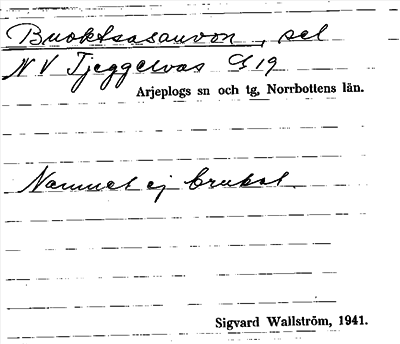 Buoktsasauvon, sel
N V Tjeggelvas G 19
Arjeplogs sn och tg, Norrbottens län.
Namnet ej brukat.
Sigvard Wallström, 1941.